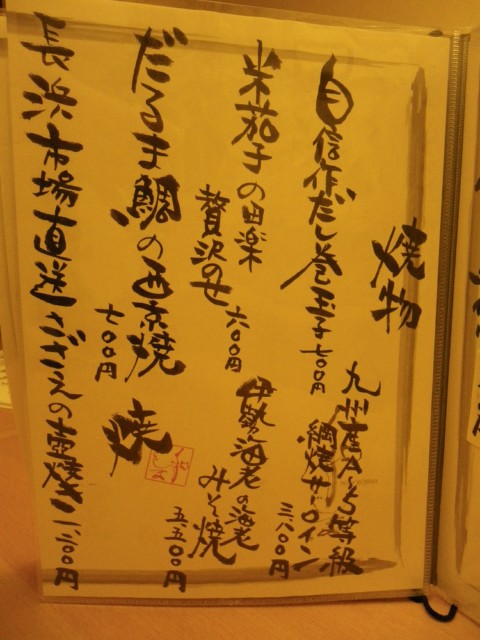 焼物
自信作だし巻玉子七〇〇円
九州産A5等級
網焼サーロイン
三、八〇〇円
米茄子の田楽
贅沢のせ
六〇〇円
伊勢海老の海老
みそ焼
五、五〇〇円
だるま鯛の西京焼
七〇〇円
焼
長浜市場直送さざえの壷焼き一、二〇〇円